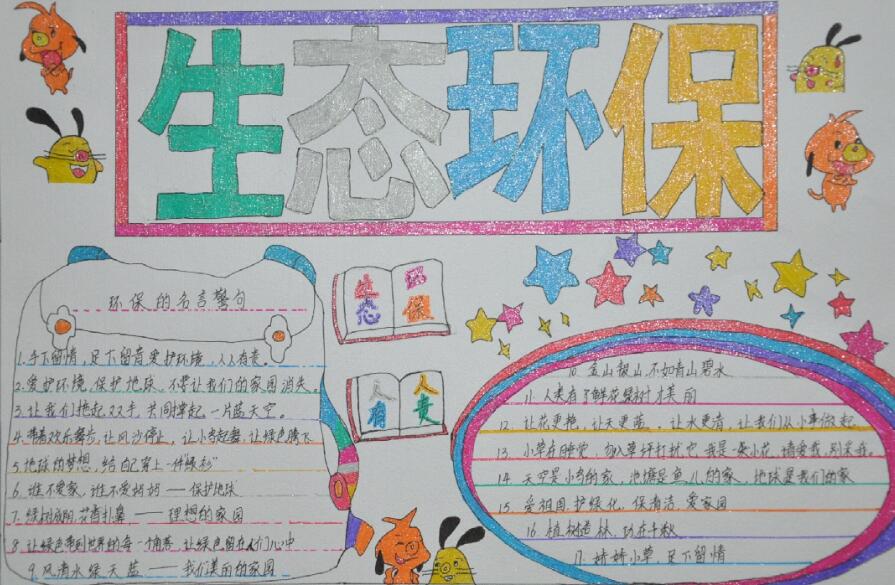 生态环保
环保的名言警句
1.手下留情,足下留青爱护环境,人人有责。
2.爱护环境,保护地球,不要让我们的家园消失。
3.让我们挽起双手,共同撑起一片蓝天空。
4.带着欢乐舞步,让风沙停止,让小鸟起舞,让绿色腾飞
5.地球的梦想,给自己穿上一件"绿衫"
6.谁不爱家,谁不爱妈妈——保护地球
7.绿树成阴,花香扑鼻——理想的家园
8.让绿色带到世界的每一个角落,让绿色留在人们心中
9.风清水绿天蓝——我们美丽的家园
生态
环保
人有
人责
10.金山银山,不如青山碧水
11.人类有了鲜花绿树才美丽
12.让花更艳,让天更蓝。让水更清,让我们从小事做起
13.小草在睡觉,勿入草坪打扰它,我是一朵小花,请爱我,别采我。
14.天空是小鸟的家,池塘是鱼儿的家,地球是我们的家
15.爱祖国,护绿化,保清洁,爱家园
16.植树造林,功在千秋
17.娇娇小草,足下留情